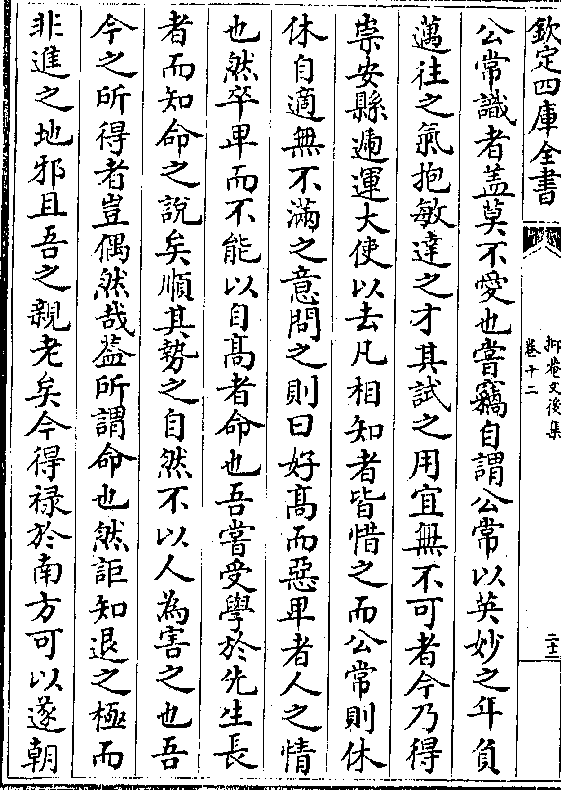 欽定四庫全書
抑菴文後集
卷十二
二十三
公常識者盖莫不愛也嘗竊自謂公常以英妙之年負
邁往之氣抱敏達之才其試之用宜無不可者今乃得
崇安縣遞運大使以去凡相知者皆惜之而公常則休
休自適無不滿之意問之則曰好髙而惡卑者人之情
也然卒卑而不能以自髙者命也吾嘗受學於先生長
者而知命之說矣順其勢之自然不以人為害之也吾
今之所得者豈偶然哉葢所謂命也然詎知退之極而
非進之地邪且吾之親老矣今得禄於南方可以遂朝